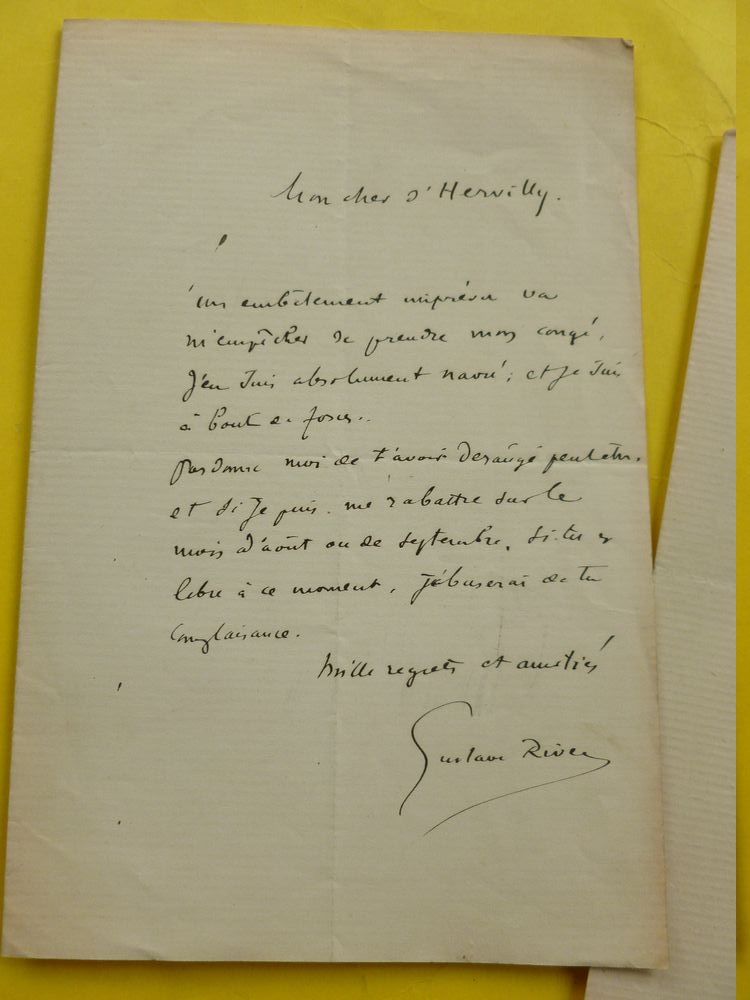 Mon cher d'Hervilly.
Un embêtement imprévu va
m'empêcher de prendre mon congé.
J'en suis absolument navré ; et je suis
à bout de forces..
Pardonne moi de t'avoir dérangé peut être.
et si je puis me rabattre sur le
mois d'août ou de septembre, si tu es
libre à ce moment, j'abuserai de ta
complaisance.
Mille regrets et amitiés
Gustave Rivet